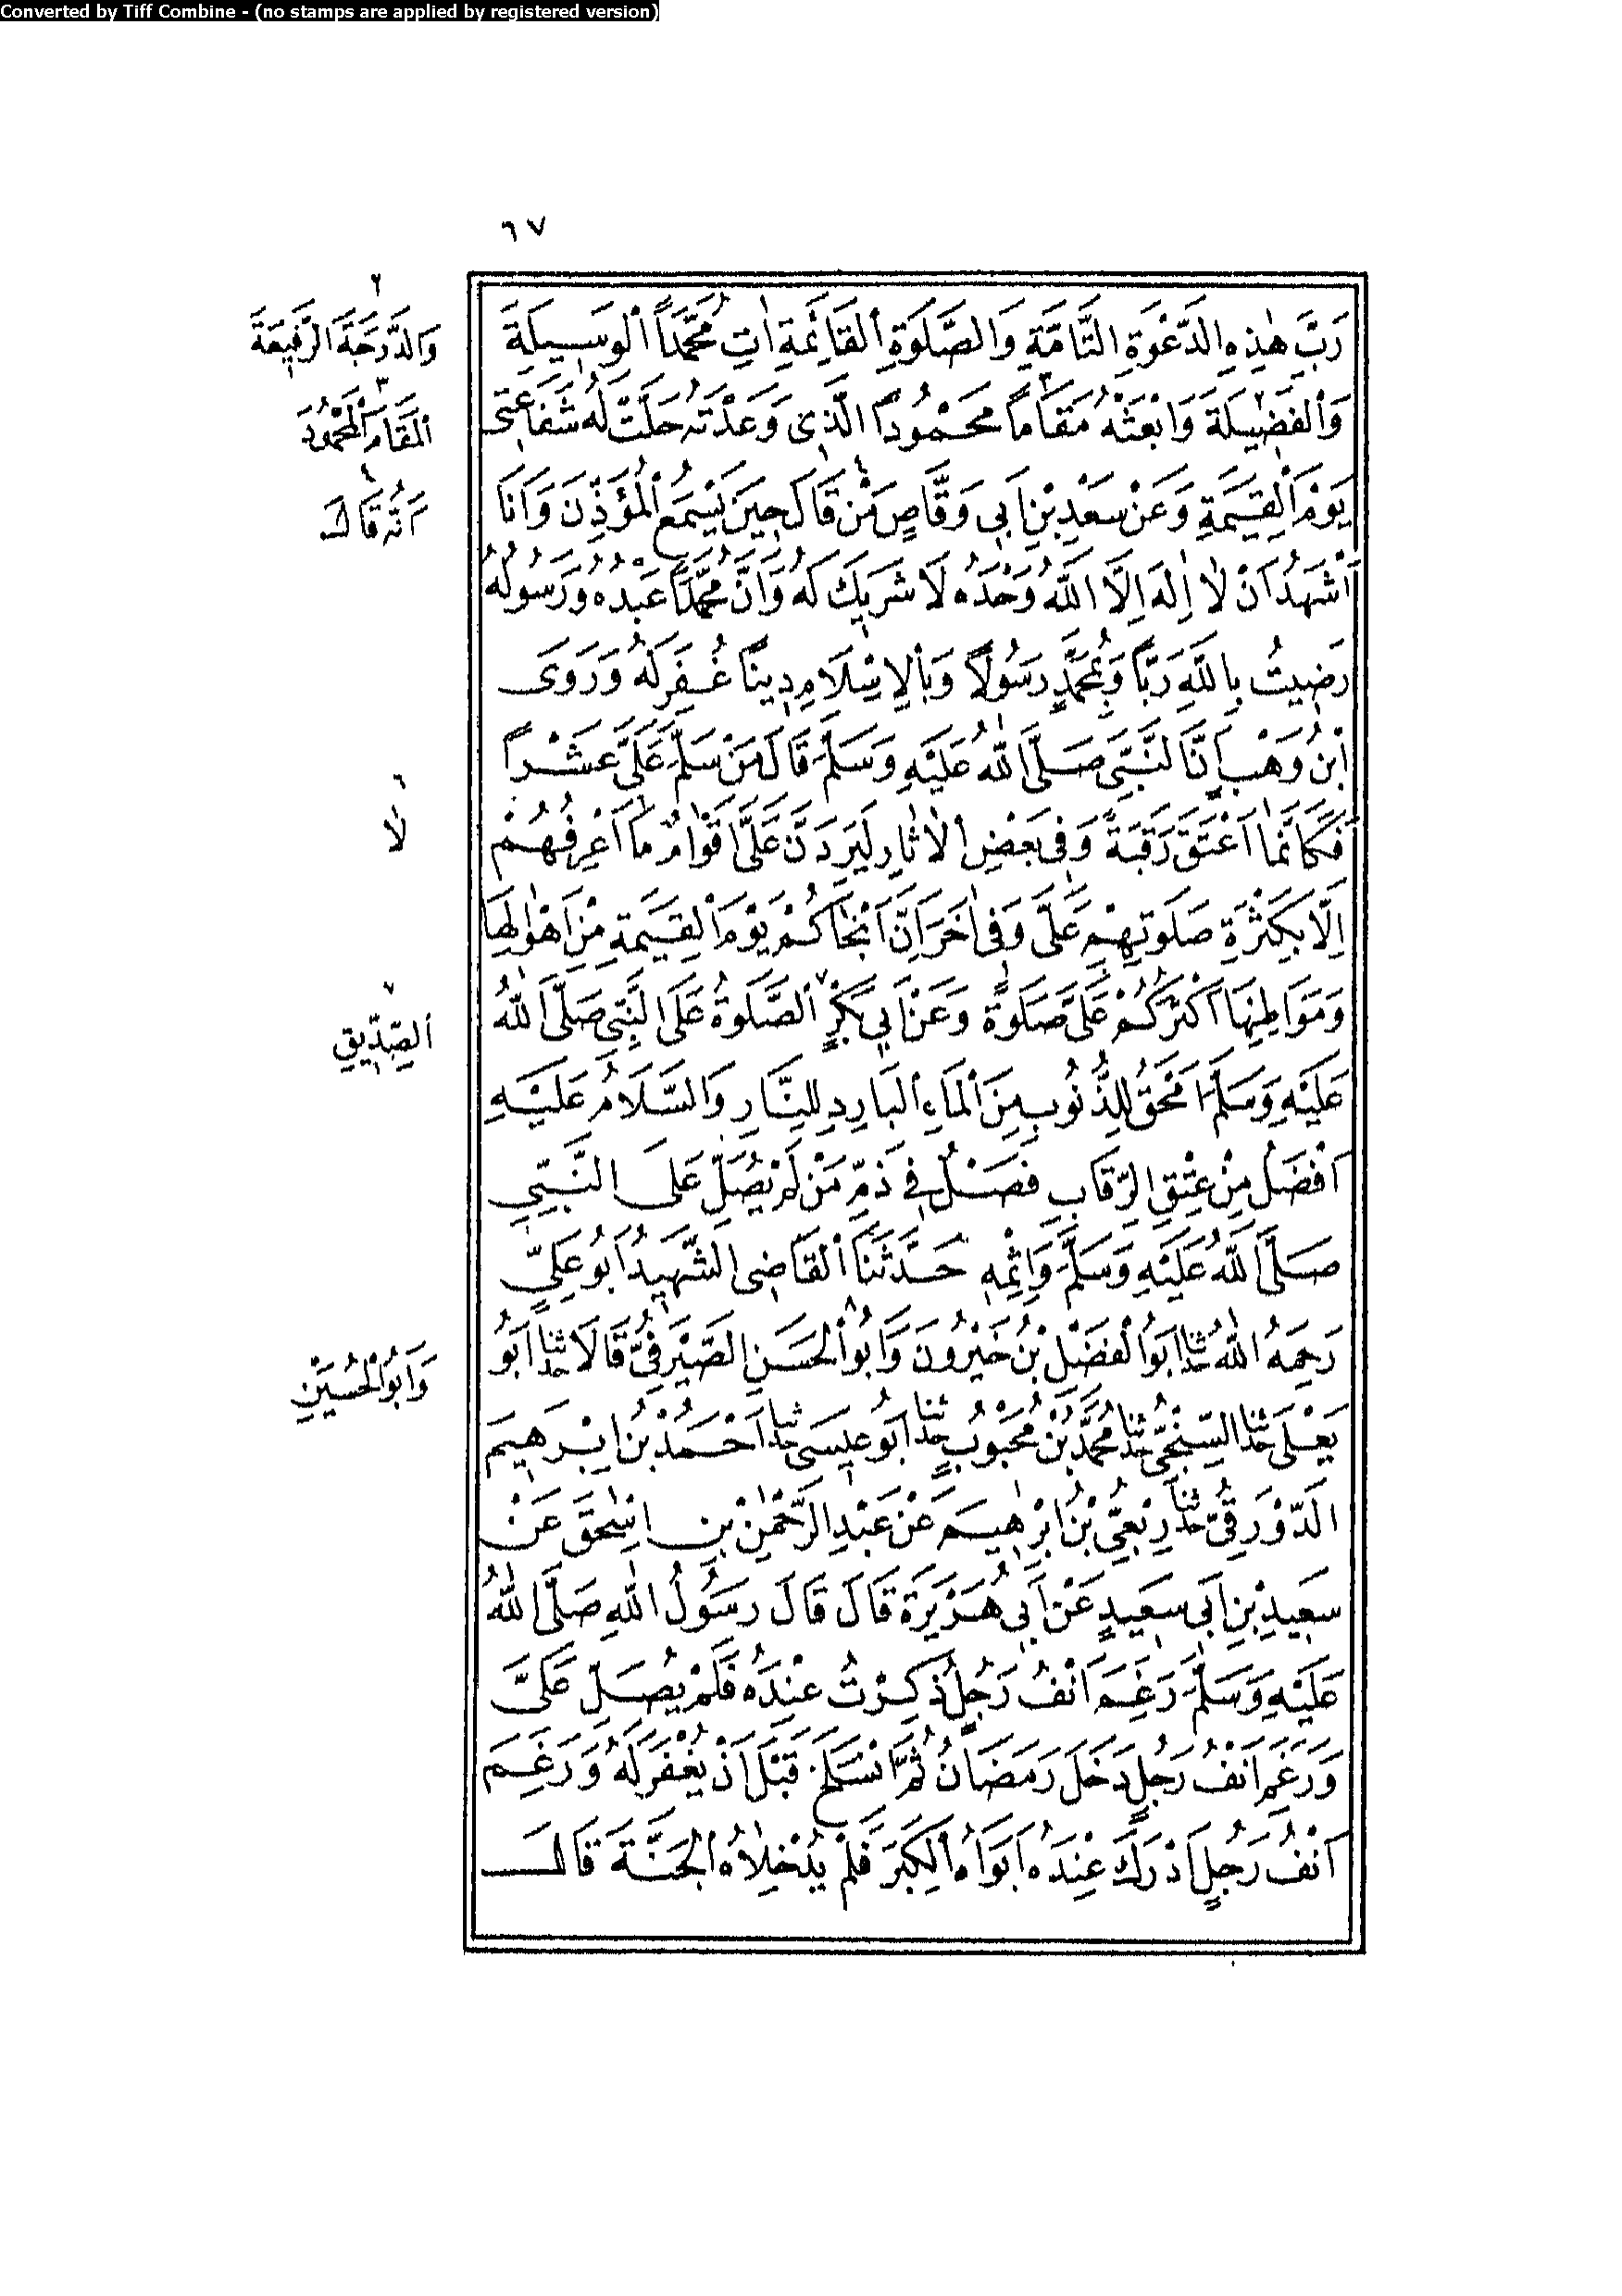 Converted by Tiff Combine - (no stamps are applied by registered version)
٦٧
رَبَّ هٰذِهِ الدَّعْوَةِ التَّامَّةِ وَالصَّلٰوةِ الْقَائِمَةِ اٰتِ مُحَمَّدًا الْوَسِيلَةَ
وَالْفَضِيلَةَ وَابْعَثْهُ مَقَامًا مَحْمُودًا الَّذِى وَعَدْتَهُ حَلَّتْ لَهُ شَفَاعَتِى
يَوْمَ الْقِيٰمَةِ وَعَنْ سَعْدِ بْنِ اَبِى وَقَّاصٍ مَنْ قَالَ حِينَ يَسْمَعُ الْمُؤَذِّنَ وَاَنَا
اَشْهَدُ اَنْ لَا اِلٰهَ اِلَّا اللّٰهُ وَحْدَهُ لَا شَرِيكَ لَهُ وَاَنَّ مُحَمَّدًا عَبْدُهُ وَرَسُولُهُ
رَضِيتُ بِاللّٰهِ رَبًّا وَبِمُحَمَّدٍ رَسُولًا وَبِالْاِسْلَامِ دِينًا غُفِرَ لَهُ وَرَوَى
ابْنُ وَهْبٍ اَنَّ النَّبِىَّ صَلَّى اللّٰهُ عَلَيْهِ وَسَلَّمَ قَالَ مَنْ سَلَّمَ عَلَىَّ عَشْرًا
فَكَاَنَّمَا اَعْتَقَ رَقَبَةً وَفِى بَعْضِ الْاٰثَارِ لَيَرِدَنَّ عَلَىَّ اَقْوَامٌ مَا اَعْرِفُهُمْ
اِلَّا بِكَثْرَةِ صَلٰوتِهِمْ عَلَىَّ وَفِى اٰخَرَ اِنَّ اَنْجَاكُمْ يَوْمَ الْقِيٰمَةِ مِنْ اَهْوَالِهَا
وَمَوَاطِنِهَا اَكْثَرُكُمْ عَلَىَّ صَلٰوةً وَعَنْ اَبِى بَكْرٍ الصَّلٰوةُ عَلَى النَّبِىِّ صَلَّى اللّٰهُ
عَلَيْهِ وَسَلَّمَ اَمْحَقُ لِلذُّنُوبِ مِنَ الْمَاءِ الْبَارِدِ لِلنَّارِ وَالسَّلَامُ عَلَيْهِ
اَفْضَلُ مِنْ عِتْقِ الرِّقَابِ فَصْلٌ فِى ذَمِّ مَنْ لَمْ يُصَلِّ عَلَى النَّبِىِّ
صَلَّى اللّٰهُ عَلَيْهِ وَسَلَّمَ وَاِثْمِهِ حَدَّثَنَا الْقَاضِى الشَّهِيدُ اَبُو عَلِىٍّ
رَحِمَهُ اللّٰهُ حدثنا اَبُو الْفَضْلِ بْنُ خَيْرُونَ وَاَبُو الْحَسَنِ الصَّيْرَفِىُّ قَالَا حدثنا اَبُو
يَعْلَى حدثنا السِّنْجِىُّ حدثنا مُحَمَّدُ بْنُ مَحْبُوبٍ حدثنا اَبُو عِيسَى حدثنا اَحْمَدُ بْنُ اِبْرٰهِيمَ
الدَّوْرَقِىُّ حدثنا رِبْعِىُّ بْنُ اِبْرٰهِيمَ عَنْ عَبْدِ الرَّحْمٰنِ بْنِ اِسْحٰقَ عَنْ
سَعِيدِ بْنِ اَبِى سَعِيدٍ عَنْ اَبِى هُرَيْرَةَ قَالَ قَالَ رَسُولُ اللّٰهِ صَلَّى اللّٰهُ
عَلَيْهِ وَسَلَّمَ رَغِمَ اَنْفُ رَجُلٍ ذُكِرْتُ عِنْدَهُ فَلَمْ يُصَلِّ عَلَىَّ
وَرَغِمَ اَنْفُ رَجُلٍ دَخَلَ رَمَضَانُ ثُمَّ انْسَلَخَ قَبْلَ اَنْ يُغْفَرَ لَهُ وَرَغِمَ
اَنْفُ رَجُلٍ اَدْرَكَ عِنْدَهُ اَبَوَاهُ الْكِبَرَ فَلَمْ يُدْخِلَاهُ الْجَنَّةَ قَالَ
٢
وَالدَّرَجَةَ الرَّفِيعَةَ
٣
الْمَقَامَ الْمَحْمُودَ
٤
اَنَّهُ قَالَ
٦
لَا
٧
الصِّدِّيقِ
وَاَبُو الْحُسَيْنِ